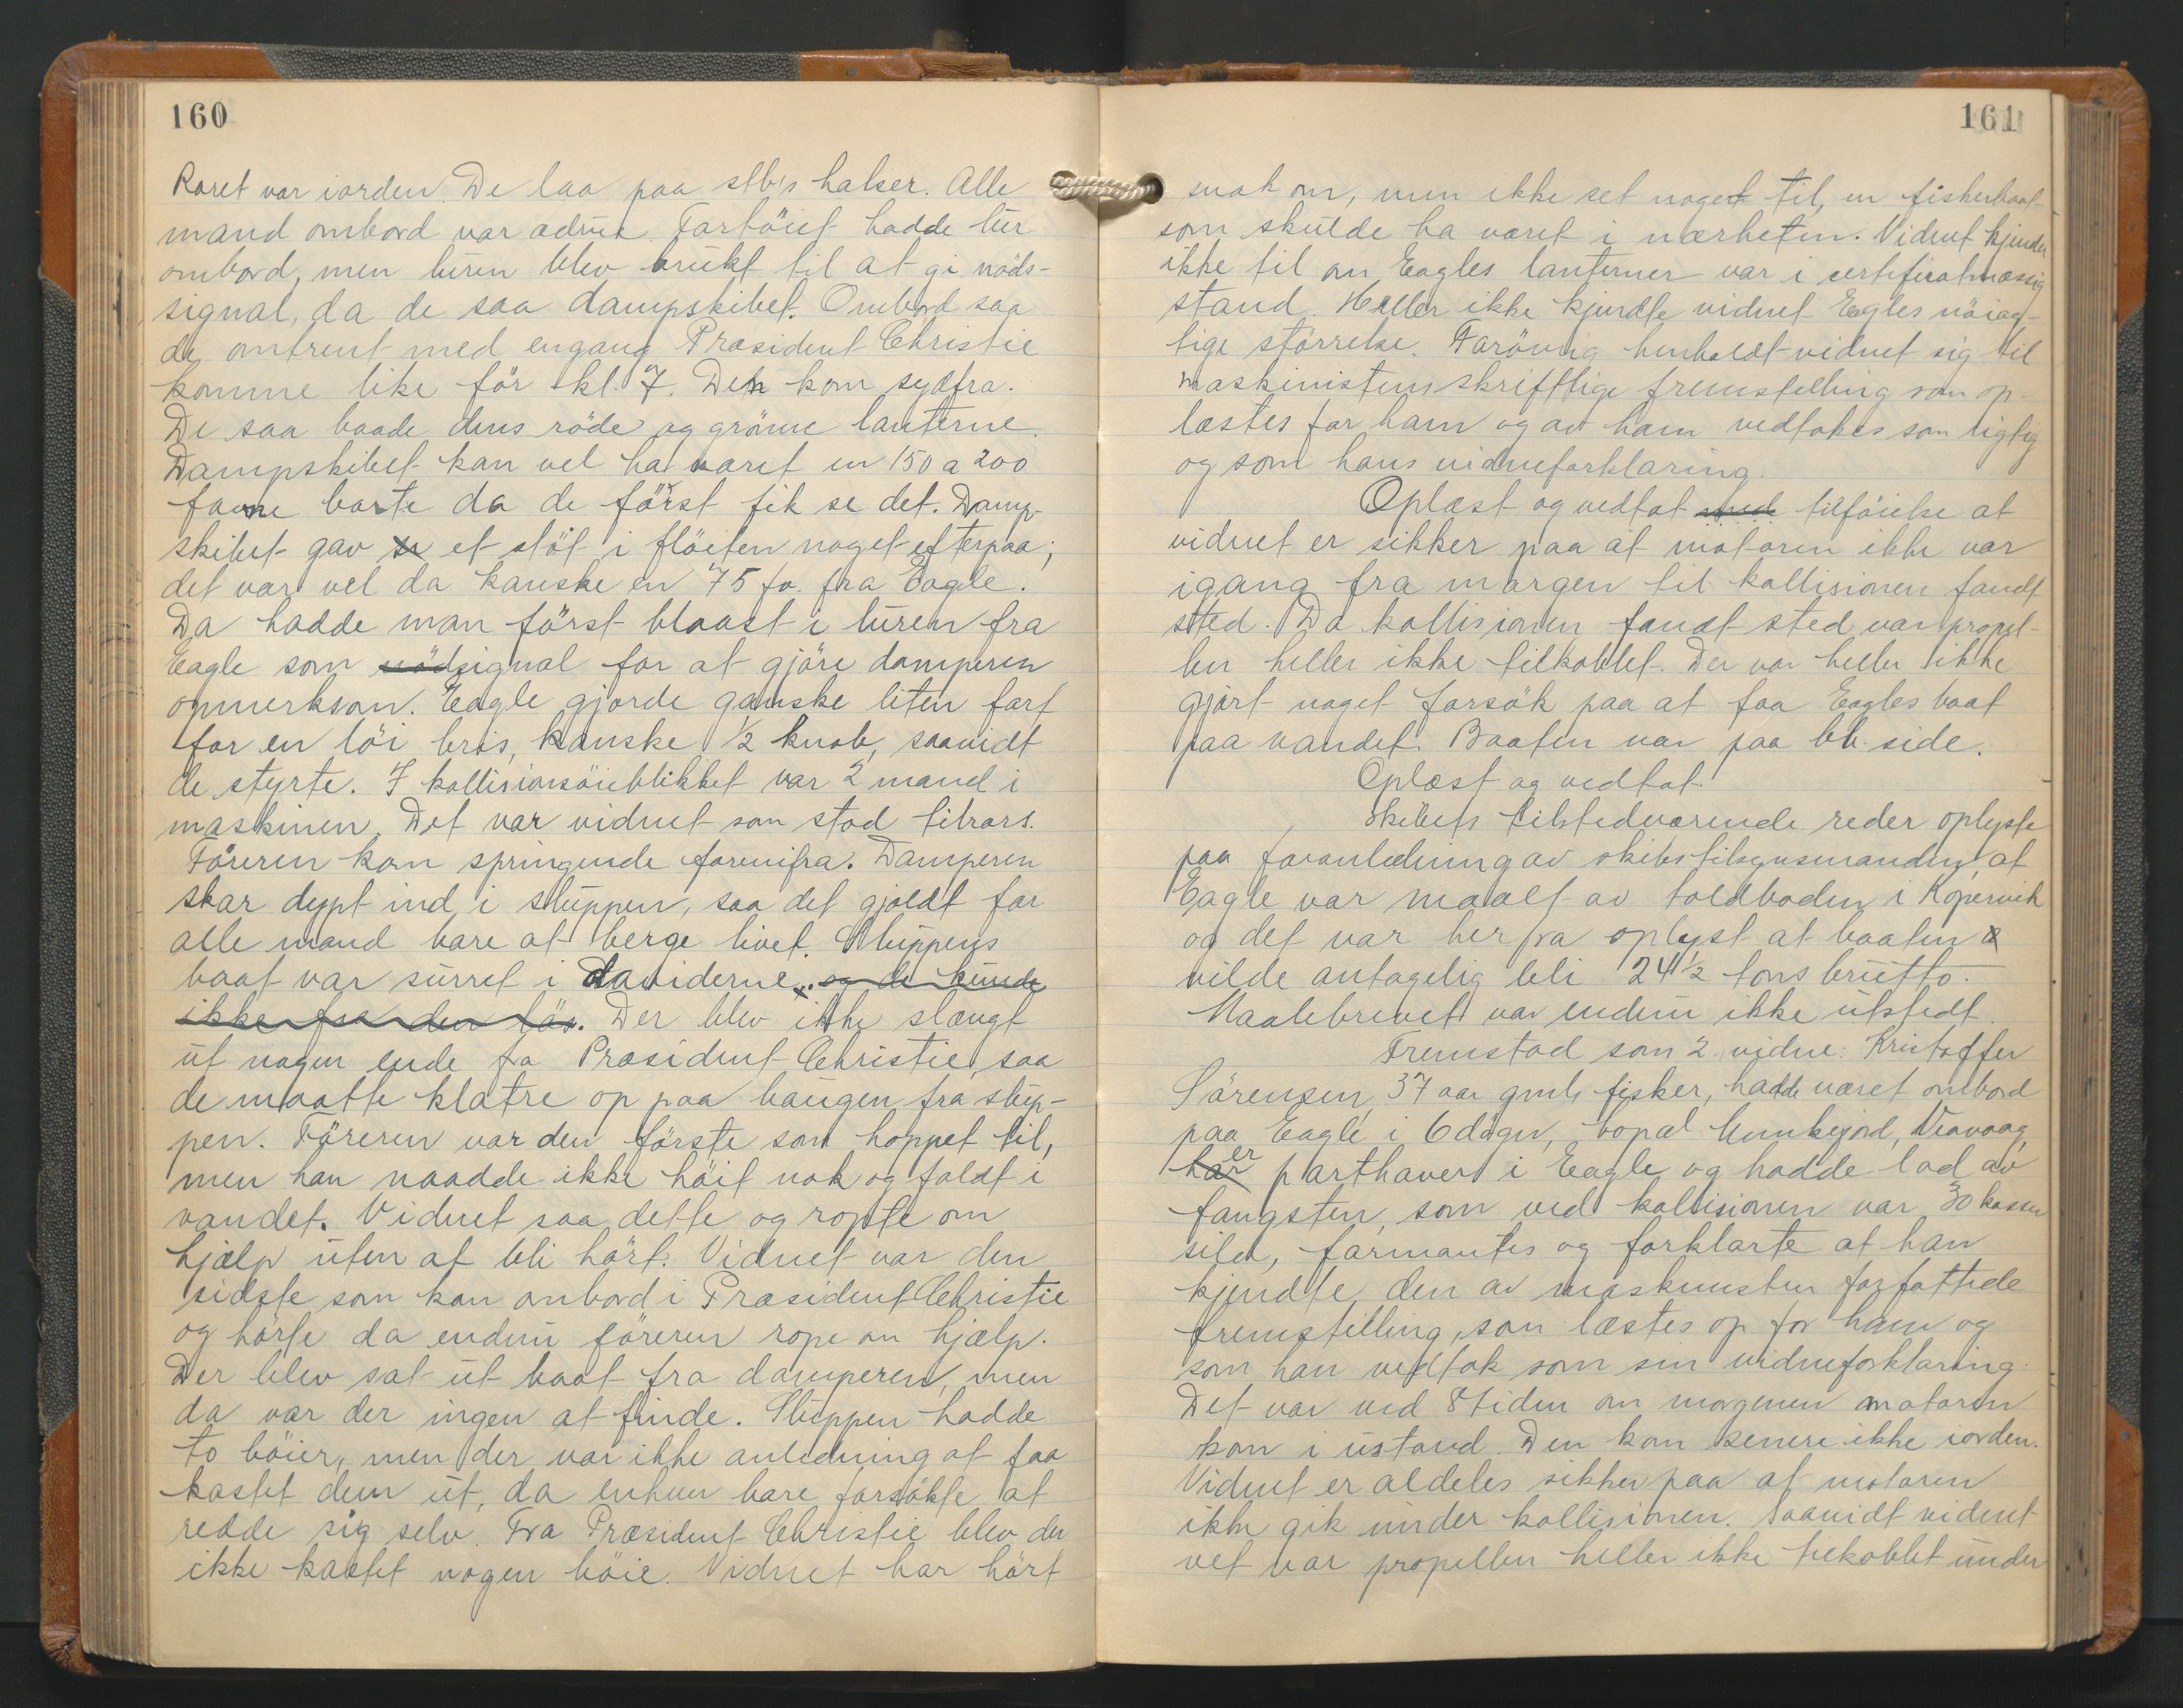 160
Roret var iorden. De laa paa stb's halser. Alle
mand ombord var ædrue. Fartöiet hadde lur
ombord, men luren blev brukt til at gi nöds-
signal, da de saa dampskibet. Ombord saa
de omtrent med engang Præsident Christie
komme like för kl. 7. Den kom sydfra.
De saa baade dens röde og grönne lanterne.
Dampskibet kan vel ha været en 150 a 200
favne borte da de först fik se det. Damp-
skibet gav et stöt i flöiten noget efterpaa;
det var vel da kanske en 75 fv. fra Eagle.
Da hadde man först blaast i luren fra
Eagle som nödsignal for at gjöre damperen
opmerksom. Eagle gjorde ganske liten fart
for en löi bris, kanske 1/2 knob, saavidt
de styrte. I kollisionsöieblikket var 2 mand i
maskinen. Det var vidnet som stod tilrors.
Föreren kom springende forenifra. Damperen
skar dypt ind i sluppen, saa det gjaldt for
alle mand bare at berge livet. Sluppens
baat var surret i daviderne. og de kunde
ikke faa den lös. Der blev ikke slængt
ut nogen ende fra Præsident Christie, saa
de maatte klatre op paa baugen fra slup-
pen. Föreren var den förste som hoppet til,
men han naadde ikke höit nok og faldt i
vandet. Vidnet saa dette og ropte om
hjælp uten at bli hört. Vidnet var den
sidste som kom ombord i Præsident Christie
og hörte da endnu föreren rope om hjælp.
Der blev sat ut baat fra damperen, men
da var der ingen at finde. Sluppen hadde
to böier, men der var ikke anledning at faa
kastet dem ut, da enhver bare forsökte at
redde sig selv. Fra Præsident Christie blev der
ikke kastet nogen böie. Vidnet har hört
161
snak om, men ikke set noget til, en fiskerbaat
som skulde ha været i nærheten. Vidnet kjender
ikke til om Eagles lanterner var i certificatmæssig
stand. Heller ikke kjendte vidnet Eagles nöiag-
tige störrelse. Forövrig henholdt vidnet sig til
maskinistens skriftlige fremstilling som op-
læstes for ham og av ham vedtokes som rigtig
og som hans vidneforklaring.
Oplæst og vedtat med tilföielse at
vidnet er sikker paa at motoren ikke var
igang fra morgen til kollisionen fandt
sted. Da kollisionen fandt sted var propel-
len heller ikke tilkoblet. Der var heller ikke
gjort noget forsök paa at faa Eagles baat
paa vandet. Baaten var paa bb. side.
Oplæst og vedtat.
Skibets tilstedværende reder oplyste
paa foranledning av skibstilsynsmanden, at
Eagle var maalt av toldboden i Kopervik
og det var herfra oplyst at baaten
vilde antagelig bli 24 1/2 tons brutto.
Maalebrevet var endnu ikke utstedt.
Fremstod som 2. vidne: Kristoffer
Sörensen, 37 aar gml, fisker, hadde været ombord
paa Eagle i 6 dager, bopæl Munkejord, Veavaag,
har er parthaver i Eagle og hadde lod av
fangsten, som ved kollisionen var 30 kasser
sild, formantes og forklarte at han
kjendte den av maskinisten forfattede
fremstilling, som læstes op for ham og
som han vedtok som sin vidneforklaring.
Det var ved 8 tiden om morgenen motoren
kom i ustand. Den kom senere ikke iorden.
Vidnet er aldeles sikker paa at motoren
ikke gik under kollisionen. Saavidt vidnet
vet var propellen heller ikke tilkoblet under